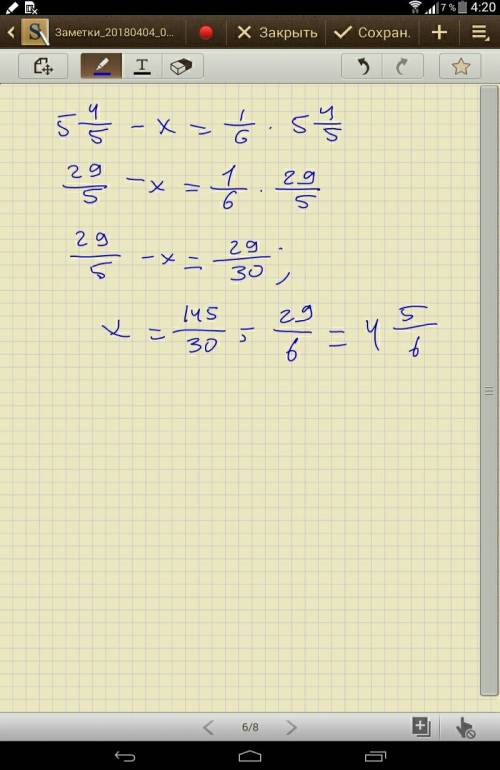 7% 4:20
Заметки_20180404_0... Закрыть Сохран.
T
5 4/5 - x = 1/6 · 5 4/5
29/5 - x = 1/6 · 29/5
29/5 - x = 29/30 ;
x = 145/30 = 29/6 = 4 5/6
6/8